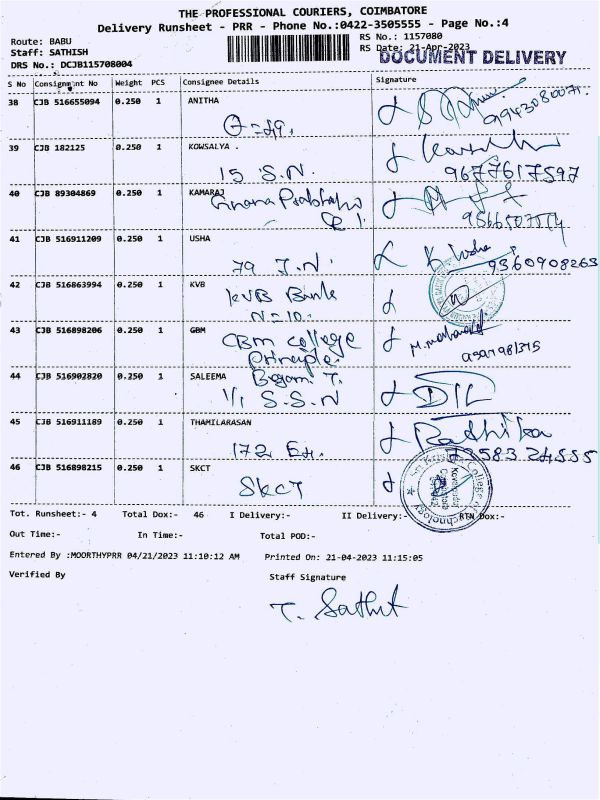 THE PROFESSIONAL COURIERS, COIMBATORE
Delivery Runsheet - PRR - Phone No.:0422-3505555 - Page No.:4
Route: BABU
RS No.: 1157080
Staff: SATHISH
RS Date: 21-Apr-2023
DRS No.: DCJB115708004
DOCUMENT DELIVERY
S No Consignment No Weight PCS Consignee Details Signature
38 CJB 516655094 0.250 1 ANITHA
39 CJB 182125 0.250 1 KOWSALYA .
15 S.N. 9677617597
40 CJB 89304869 0.250 1 KAMARAJ
Gnana Prabhaho
41 CJB 516911209 0.250 1 USHA
79 J.N. 9360908263
42 CJB 516863994 0.250 1 KVB
KVB Bank
N=10.
43 CJB 516898206 0.250 1 GBM
CBM college
Principle.
44 CJB 516902820 0.250 1 SALEEMA Begam T.
1/1 S.S.N DIL
45 CJB 516911189 0.250 1 THAMILARASAN Radhika
172 7358324555
46 CJB 516898215 0.250 1 SKCT
SKCT
Tot. Runsheet:- 4 Total Dox:- 46 I Delivery:- II Delivery:- RTN Dox:-
Out Time:- In Time:- Total POD:-
Entered By :MOORTHYPRR 04/21/2023 11:10:12 AM Printed On: 21-04-2023 11:15:05
Verified By Staff Signature
T. Sathit